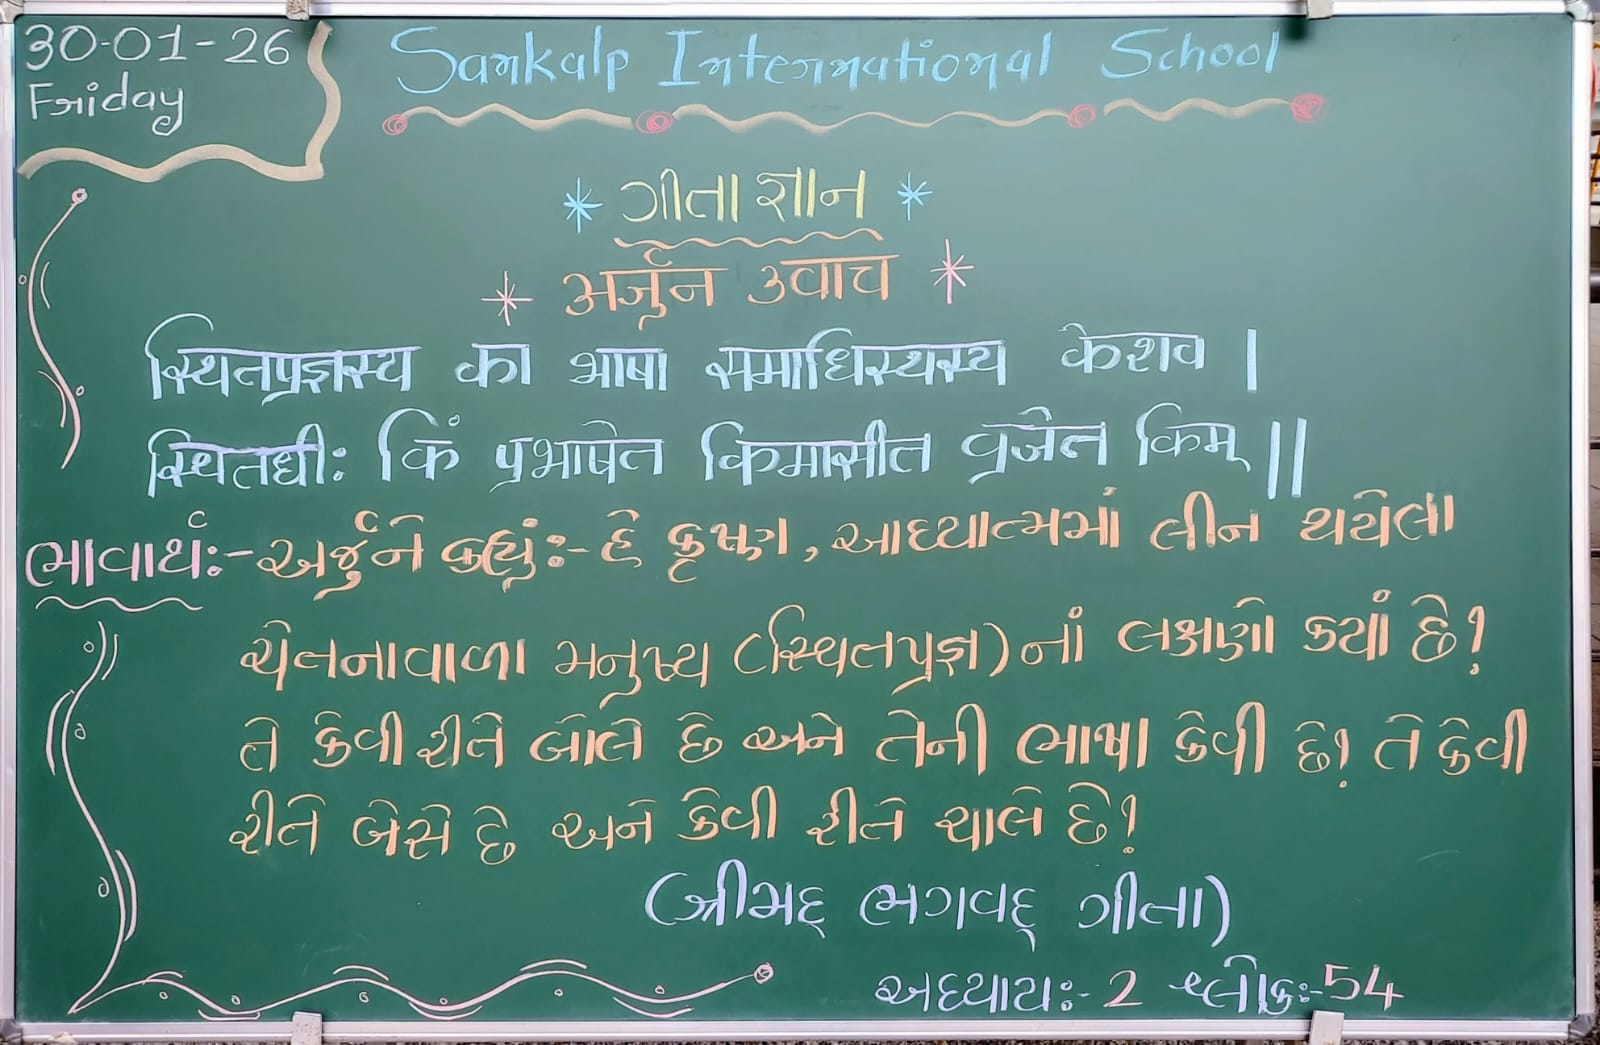 30-01-26
Friday
Sankalp International School
ગીતા જ્ઞાન
अर्जुन उवाच
स्थितप्रज्ञस्य का भाषा समाधिस्थस्य केशव |
स्थितधीः किं प्रभाषेत किमासीत व्रजेत किम् ||
ભાવાર્થઃ- અર્જુને કહ્યુંઃ- હે કૃષ્ણ, આધ્યાત્મમાં લીન થયેલા
ચેતનાવાળા મનુષ્ય (સ્થિતપ્રજ્ઞ)નાં લક્ષણો કયાં છે?
તે કેવી રીતે બોલે છે અને તેની ભાષા કેવી છે? તે કેવી
રીતે બેસે છે અને કેવી રીતે ચાલે છે?
(શ્રીમદ્ ભગવદ્ ગીતા)
અધ્યાયઃ- 2 શ્લોકઃ-54